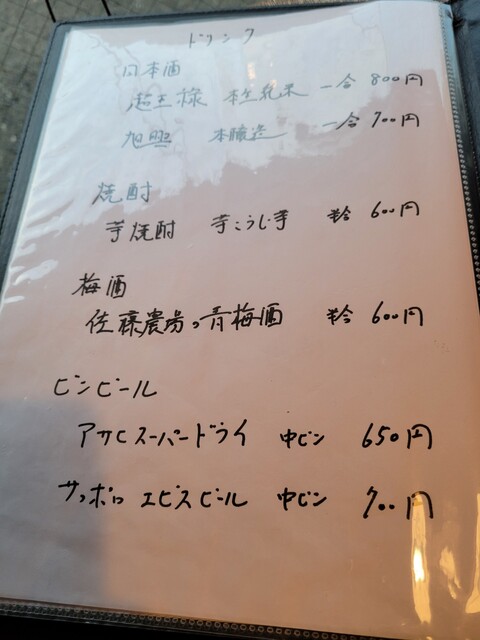 ドリンク
日本酒
超王様 本生純米 一合 800円
旭興 本醸造 一合 700円
焼酎
芋焼酎 芋こうじ芋 半合 600円
梅酒
佐藤農場の青梅酒 半合 600円
ビンビール
アサヒスーパードライ 中ビン 650円
サッポロ エビスビール 中ビン 700円